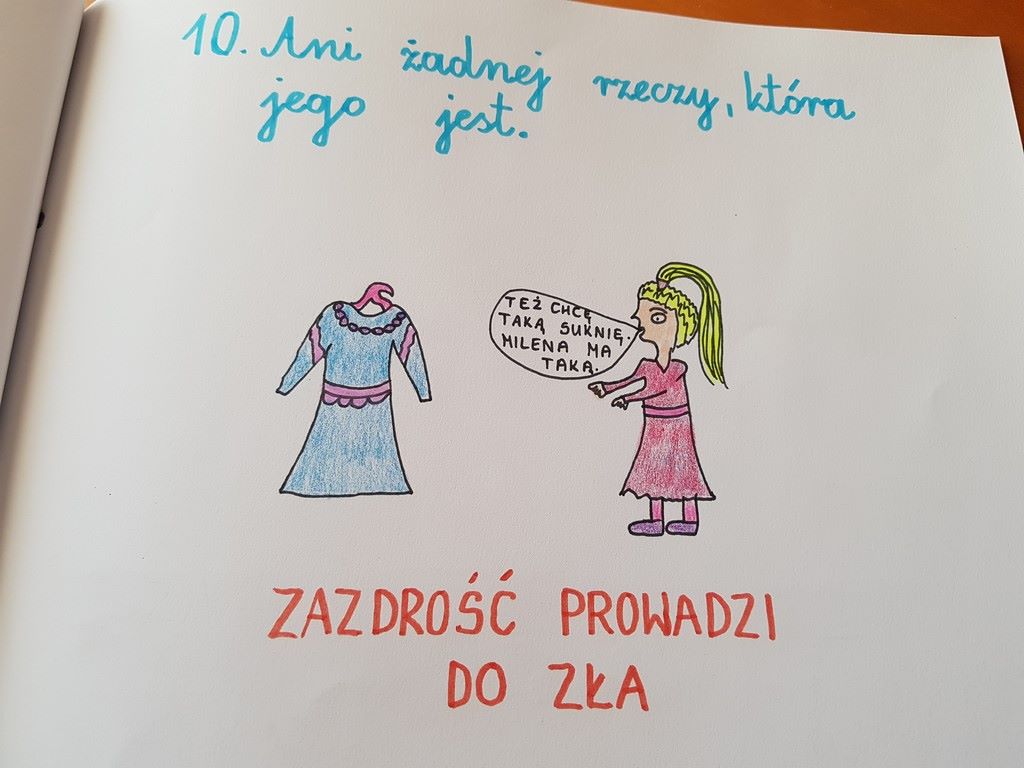 10. Ani żadnej rzeczy, która
jego jest.
TEŻ CHCĘ
TAKĄ SUKNIĘ.
MILENA MA
TAKĄ.
ZAZDROŚĆ PROWADZI
DO ZŁA